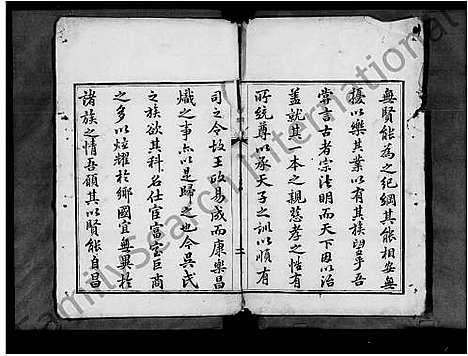 無賢能為之紀綱其能相安無
擾以樂其業以有其族望乎吾
嘗言古者宗法明而天下因以治
蓋就其一本之親慈孝之性有
所統尊以承天子之訓以順有
司之令故王政易成而康樂昌
熾之事亦以是歸之也今吳氏
之族欲其科名仕宦富室巨商
之多以炫耀於鄉國宜無異於
諸族之情吾願其以賢能自昌
二
FamilySearch International